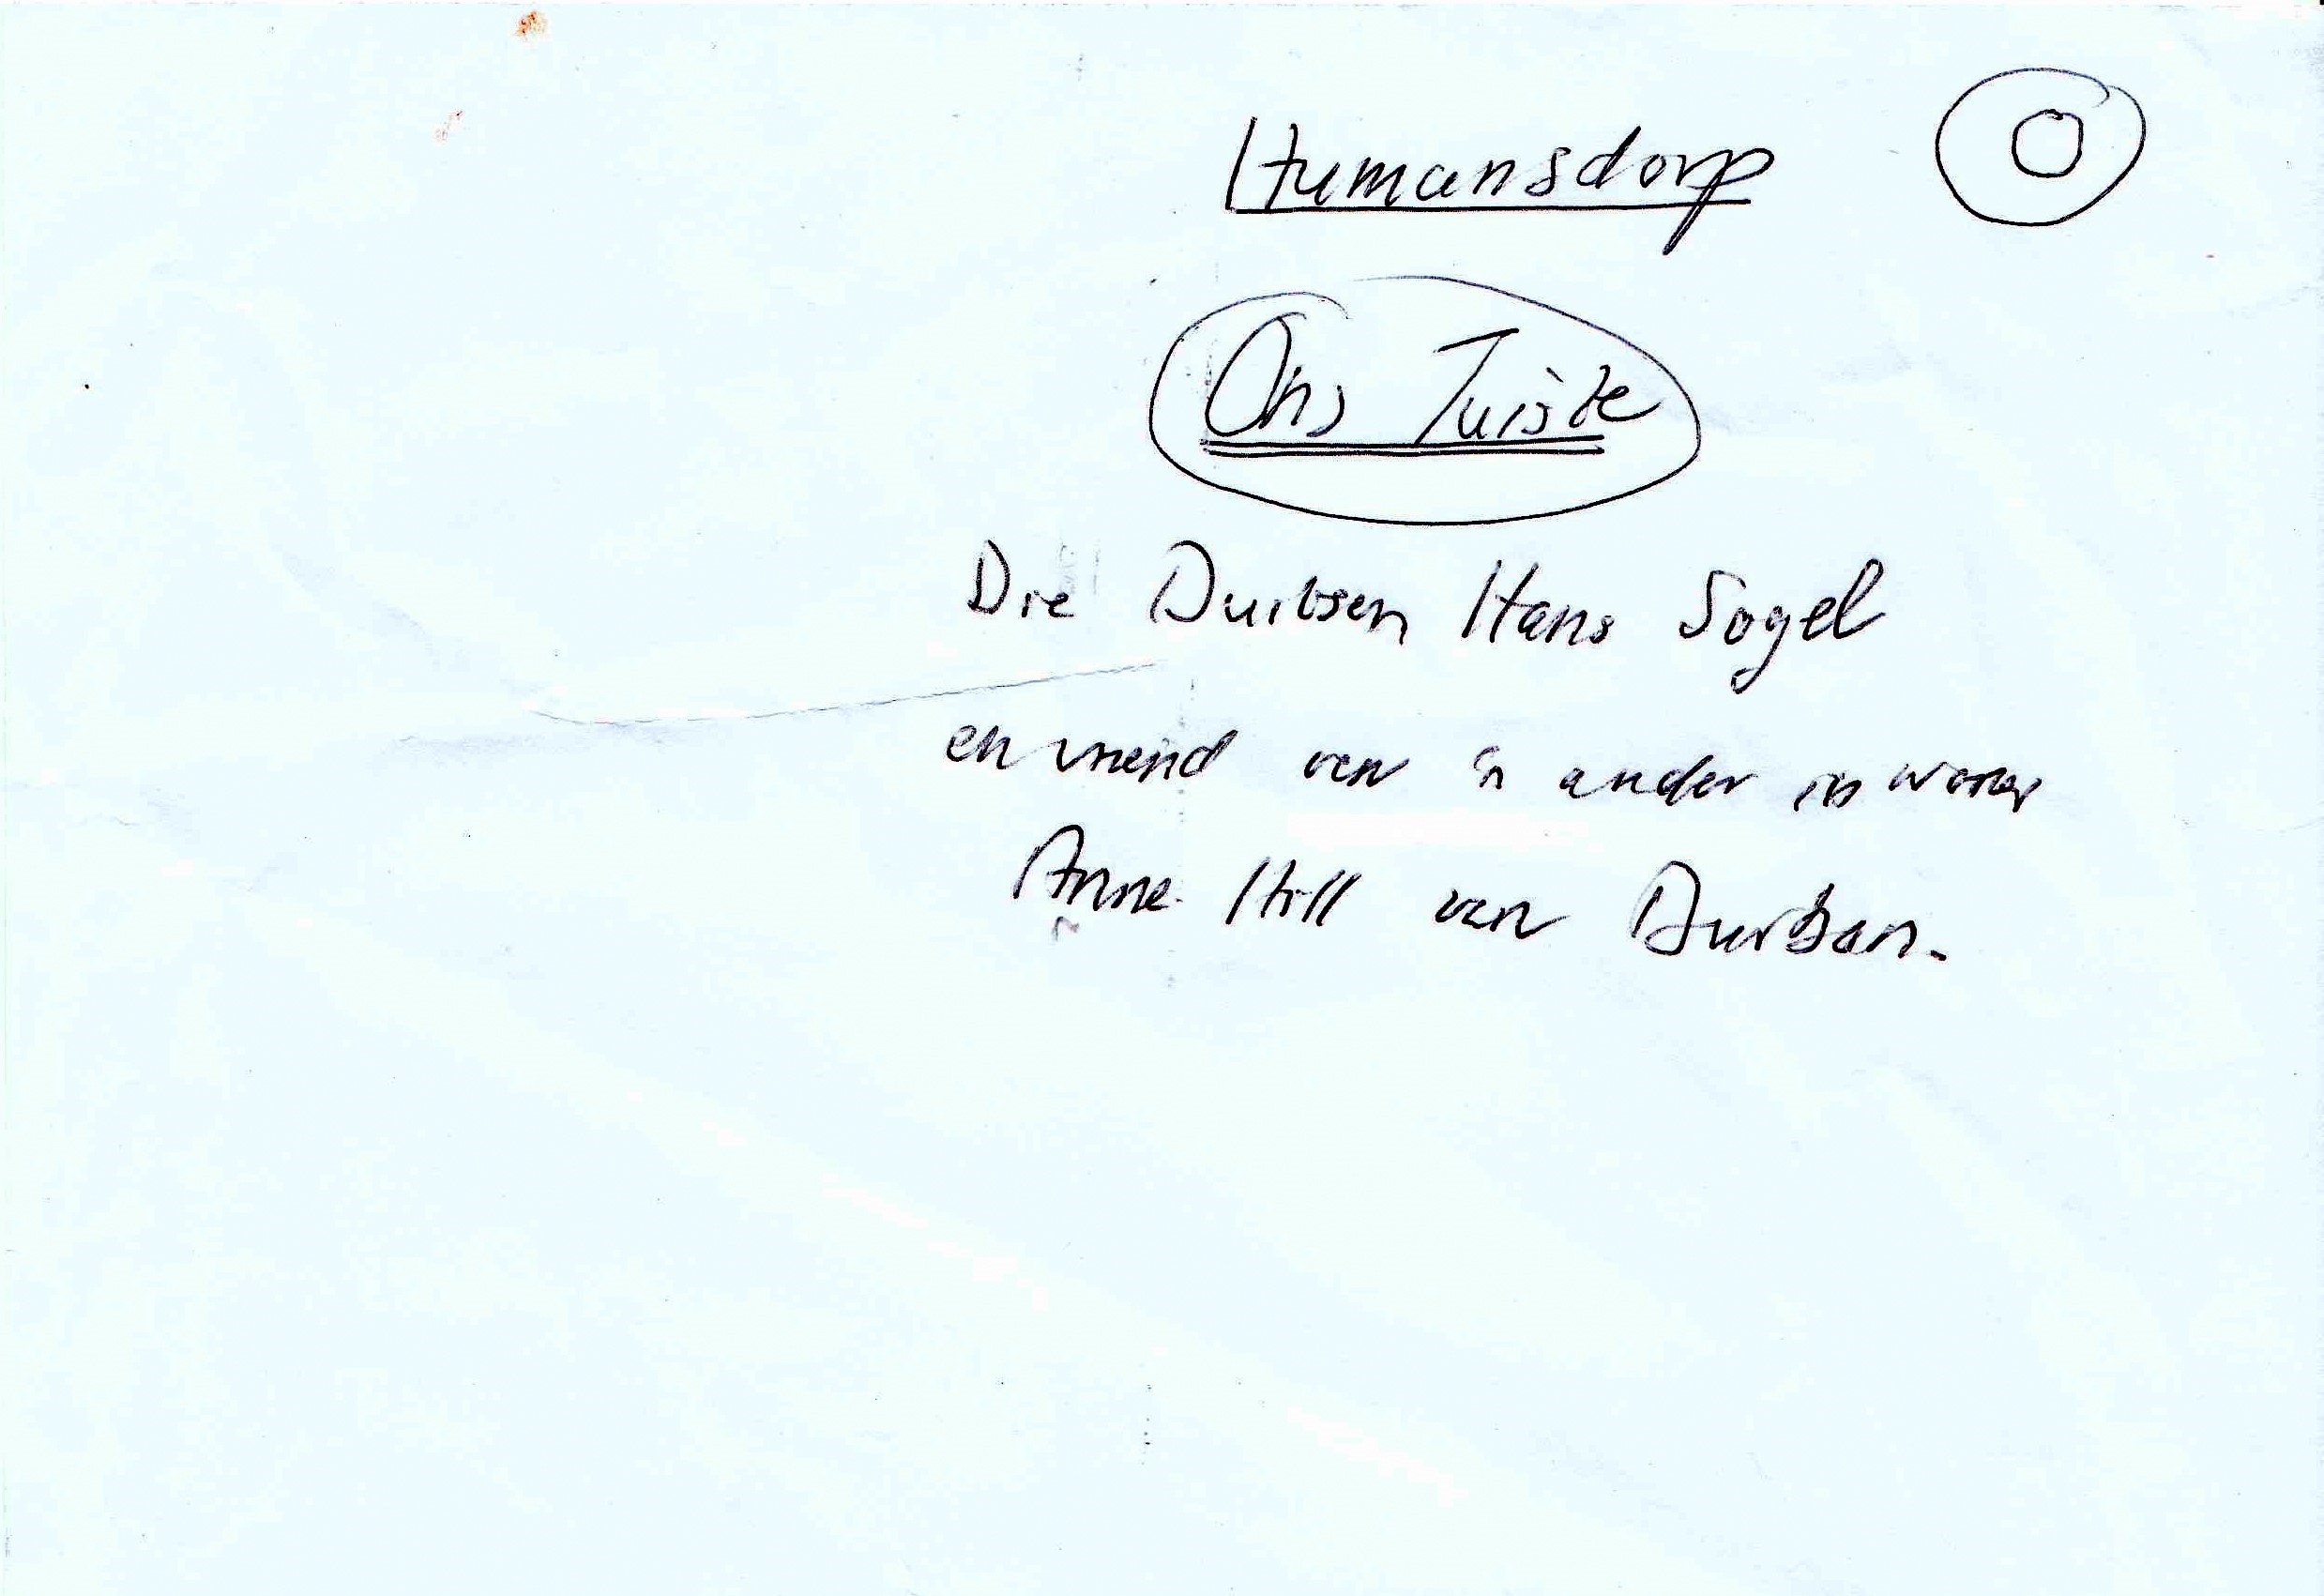 Humansdorp O
Ons Tuiste
Die Duitser Hans Sogel
en vriend van 'n ander inwoner
Anne Hill van Durban.